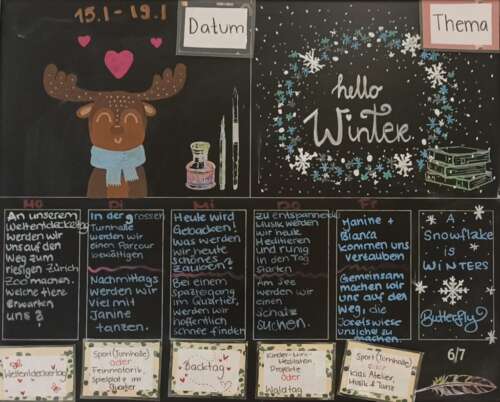 15.1 - 19.1
Datum
Thema
hello
Winter
Mo
Di
Mi
Do
Fr
An unserem
Weltentdeckertag
werden wir
uns auf den
Weg zum
riesigen Zürich
Zoo machen.
Welche tiere
Erwarten
uns?
In der grossen
Turnhalle
werden wir
einen Parcour
bewältigen
Nachmittags
werden wir
viel mit
Janine
tanzen.
Heute wird
Gebacken!
Was werden
wir heute
schönes
zaubern?
Bei einem
Spaziergang
im Quartier,
werden wir
hoffentlich
Schnee finden
Zu entspannender
Musik werden
wir heute
Meditieren
und ruhig
in den Tag
starten
Am See werden
wir einen
Schatz
suchen.
Manine +
Bianca
kommen uns
verzaubern
Gemeinsam
machen wir
uns auf den
Weg, die
Josefswiese
unsicher zu
machen
A
Snowflake
is
WINTERS
Butterfly
Weltentdeckertag
Sport (Turnhalle)
oder
Feinmotorik,
Spielplatz im
Quartier
Backtag
Kinder-Uni-
Meditation
Projekte
oder
Waldtag
Sport (Turnhalle)
oder
Kidz Atelier,
Musik & Tanz
6/7